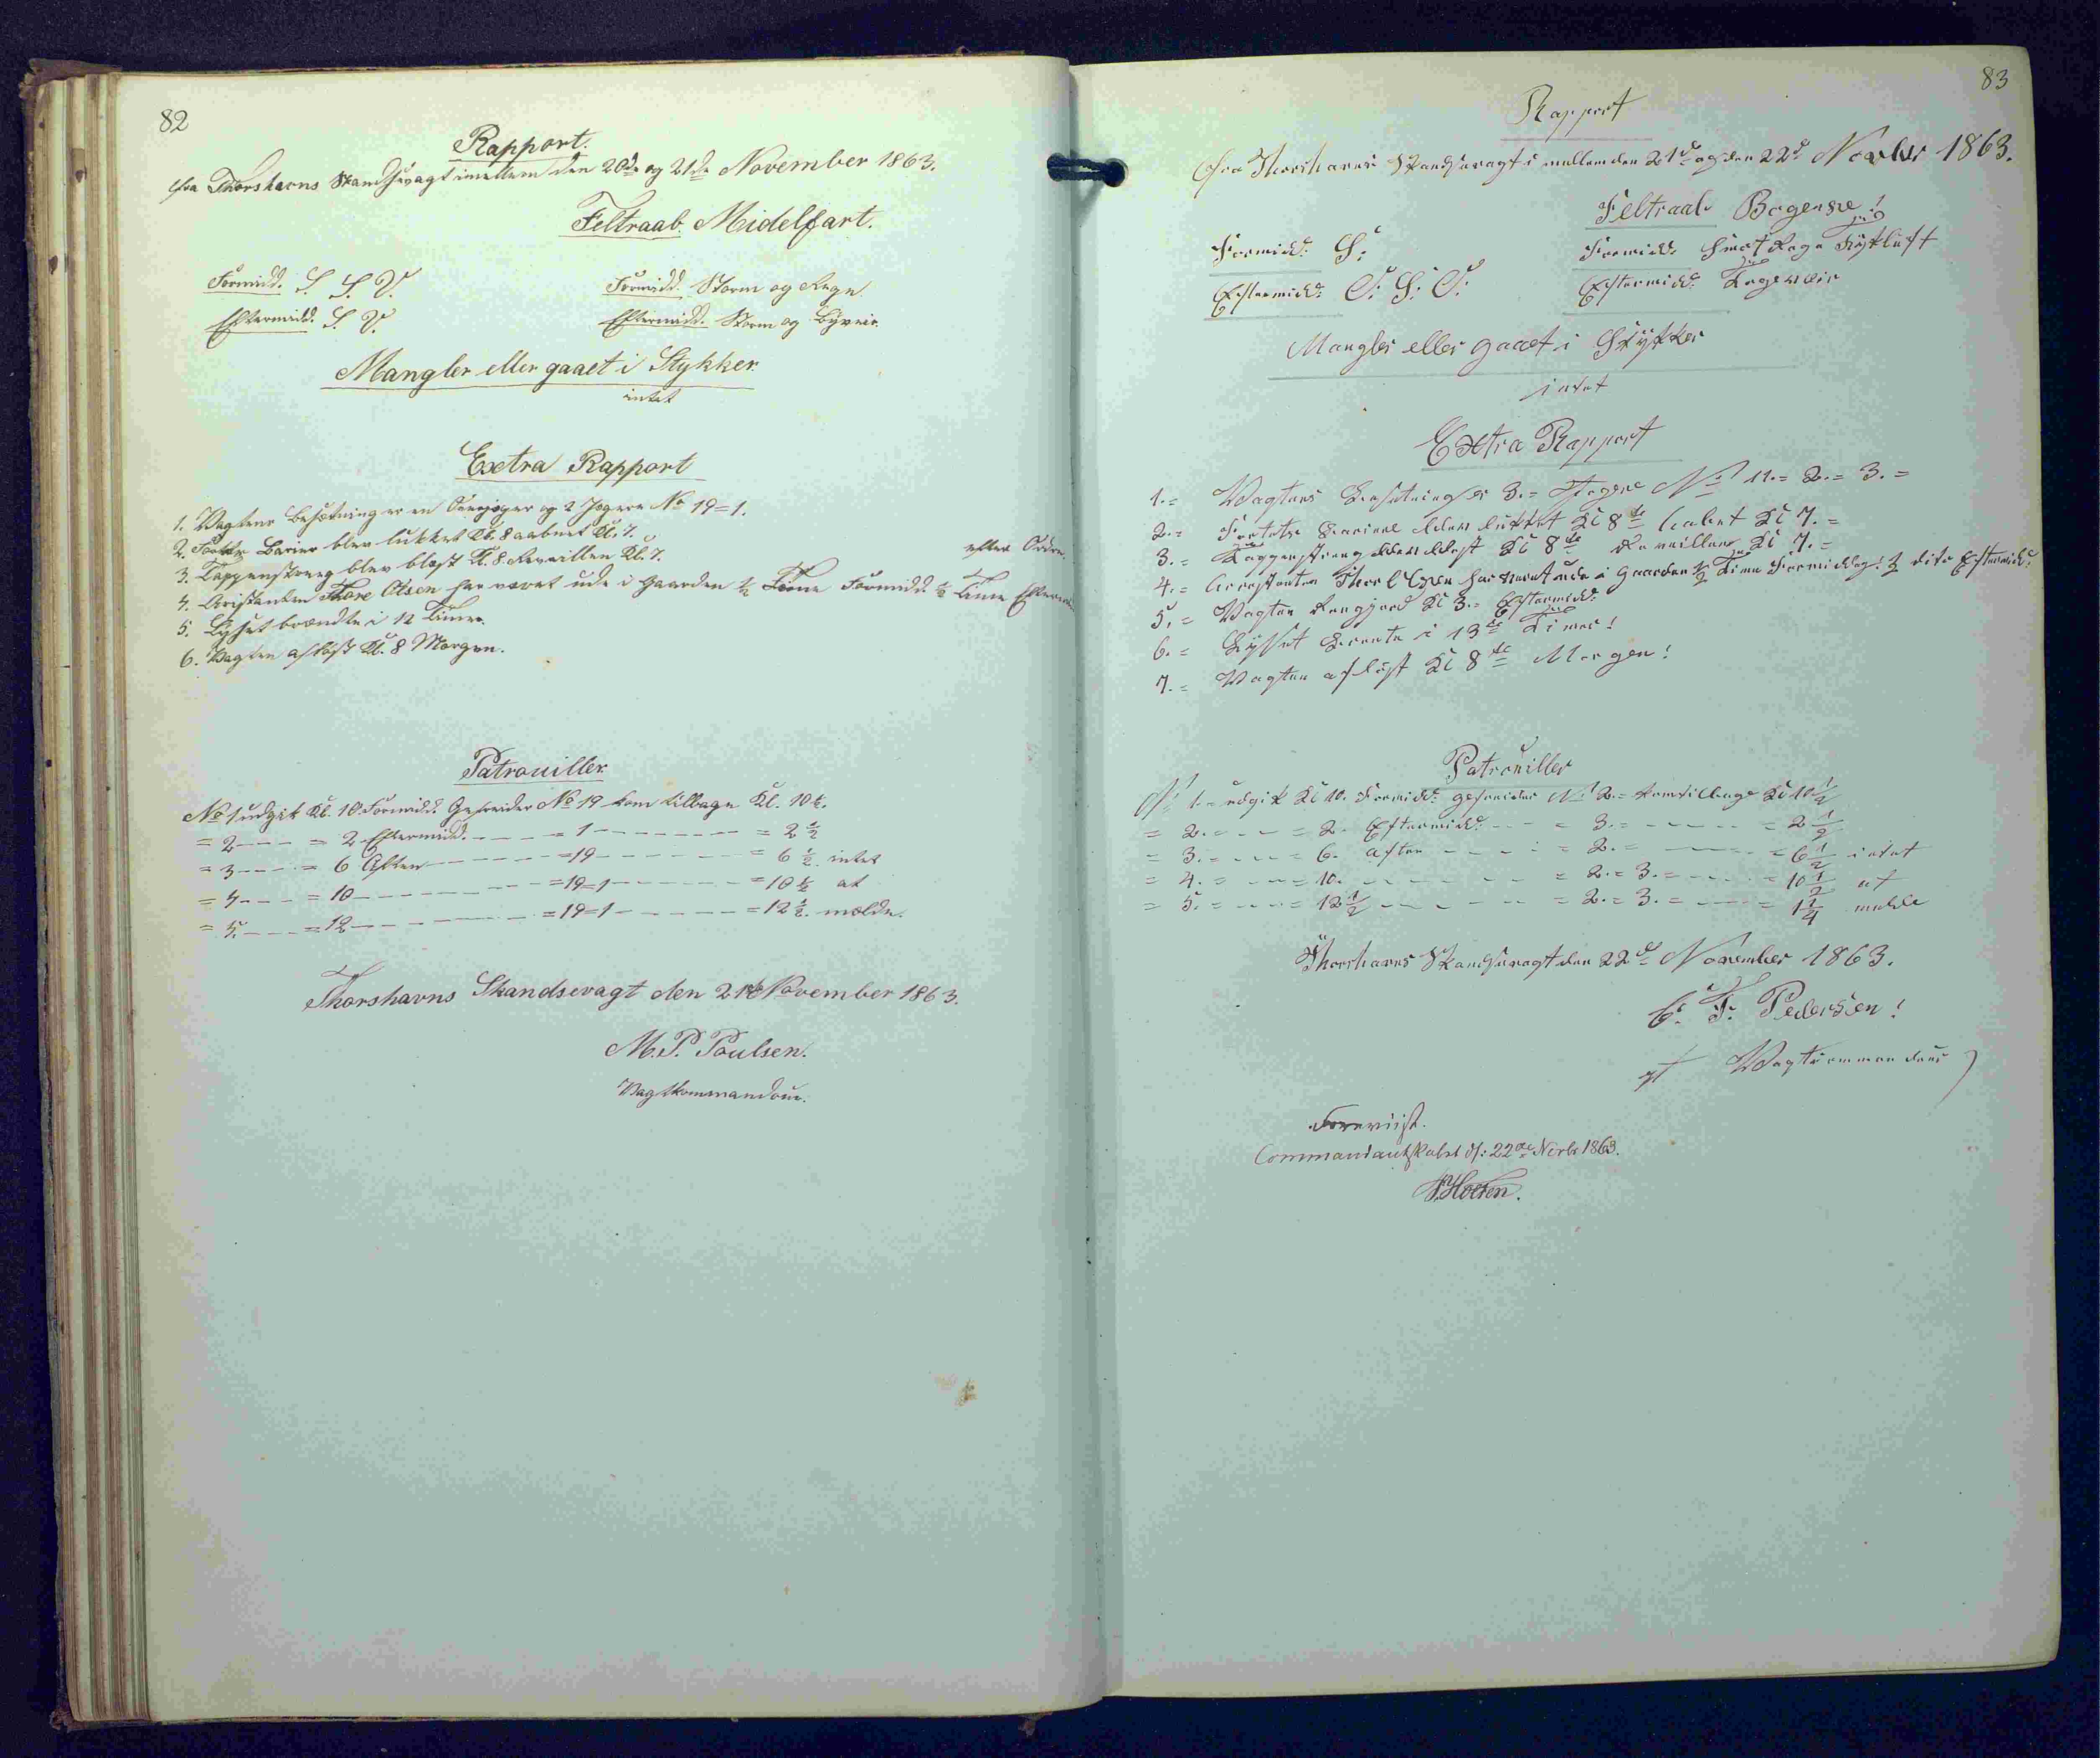 82
Rapport.
fra Thorshavns Skandsevagt imellem den 20de og 21de November 1863.
Feltraab. Midelfart.
Formidd. S. S. V.
Formidd. Storm og Regn.
Eftermidd. S. V.
Eftermidd. Storm og Byveir.
Mangler eller gaaet i Stykker.
intet
Extra Rapport
1. Vagtens Besætning er en Overjæger og 2 Jægere No 19=1.
2. Forttets Barier blev lukket Kl. 8 aabnet Kl. 7.
3. Tappenstreg blev blæst Kl. 8. Reveillen Kl. 7.
efter Ordre.
4. Aristanten Thore Olsen har været ude i Gaarden ½ Time Formidd. ½ Time Eftermidd
5. Lyset brændte i 12 Timer.
6. Vagten afløst Kl. 8 Morgen.
Patrouiller.
No 1 udgik Kl. 10 Formidd. Gefreider No 19 kom tilbage Kl. 10½.
= 2 - - - = 2 Eftermidd. - - - = 1 - - - - - - = 2½
= 3 - - - = 6 Aften - - - - - =19 - - - - - - = 6½ intet
= 4 - - - = 10 - - - - - - =19=1 - - - - - =10½ at
= 5. - - - =12 - - - - - - =19=1 - - - - - =12½. melde.
Thorshavns Skandsevagt den 21de November 1863.
M. P. Poulsen.
Vagtkommandeur.
83
Rapport
Fra Thorshavns Skandsevagt imellem den 21de og den 22de Novbr 1863.
Feltraab Bogense!
Formidd: S:
Formidd: Smat Regn Tÿkluft
Eftermidd: O: S: O:
Eftermidd: Regnveir
Mangler eller gaaet i Stÿkker
intet
Extra Rapport
1.= Vagtens Besetning er 3.= Jegere No 11.= 2.= 3.=
2.= Fortets Bariere blev lukket Kl 8te aabnet Kl 7.=
3.= Tappenstreng blev blest Kl 8te Reveillen Kl 7.=
4.= Arrestanten Thor Olsen har veret ude i Gaarden ½ Time Formiddag! ½ dito Eftermidd:
5.= Vagten Rengjord Kl 3.= Eftermidd:
6.= Lÿsset Brente i 13te Timer!
7.= Vagten aflöst Kl 8te Morgen!
Patrouiller
No 1.= udgik Kl 10. Formidd: gefreider No 2.= kom tillbage Kl 10½
= 2.= - - = 2. Eftermidd: - - = 3.= - - - - = 2½
= 3.= - - = 6. aften - - - = 2.= - - - = 6½ intet
= 4.= - - = 10. - - - - - = 2.= 3.= - - - = 10½ at
= 5.= - - = 12½ - - - - - = 2.= 3.= - - - = 1¼ melde
Thorshavns Skandsevagt den 22de November 1863.
T. Pedersen!
Vagtcommandeur
Foreviist.
Commandantskabet d: 22de Novbr 1863.